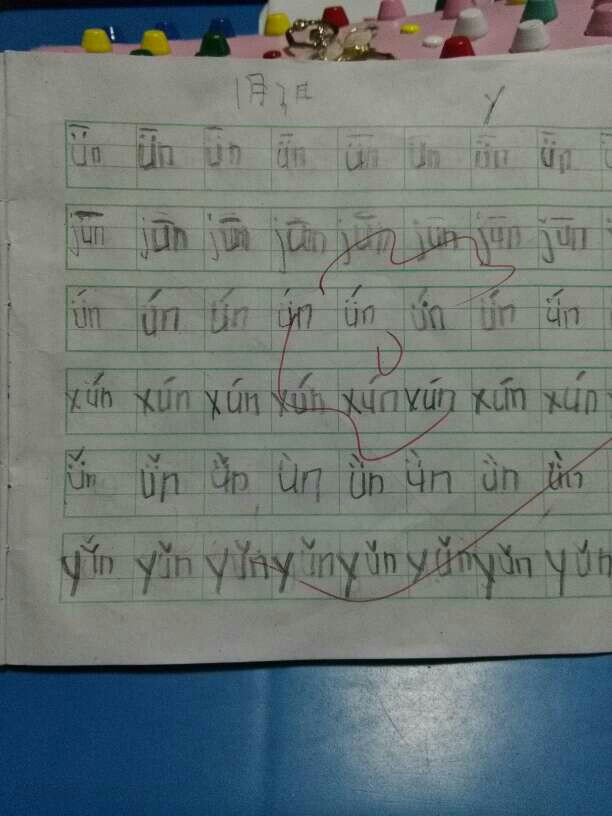 1月3日 y
ǖn ǖn ǖn ǖn ǖn ün ǖn ǖn
jūn jūn jūn jūn jūn jūn jūn jūn
ǘn ǘn ǘn ǘn ǘn ǘn ǘn ǘn
xún xún xún xún xún xún xún xún
ǚn ǚn ǚn ùn ǜn ǜn ǜn ǜn
yǔn yǔn yǔn yǔn yǔn yǔn yǔn yǔn